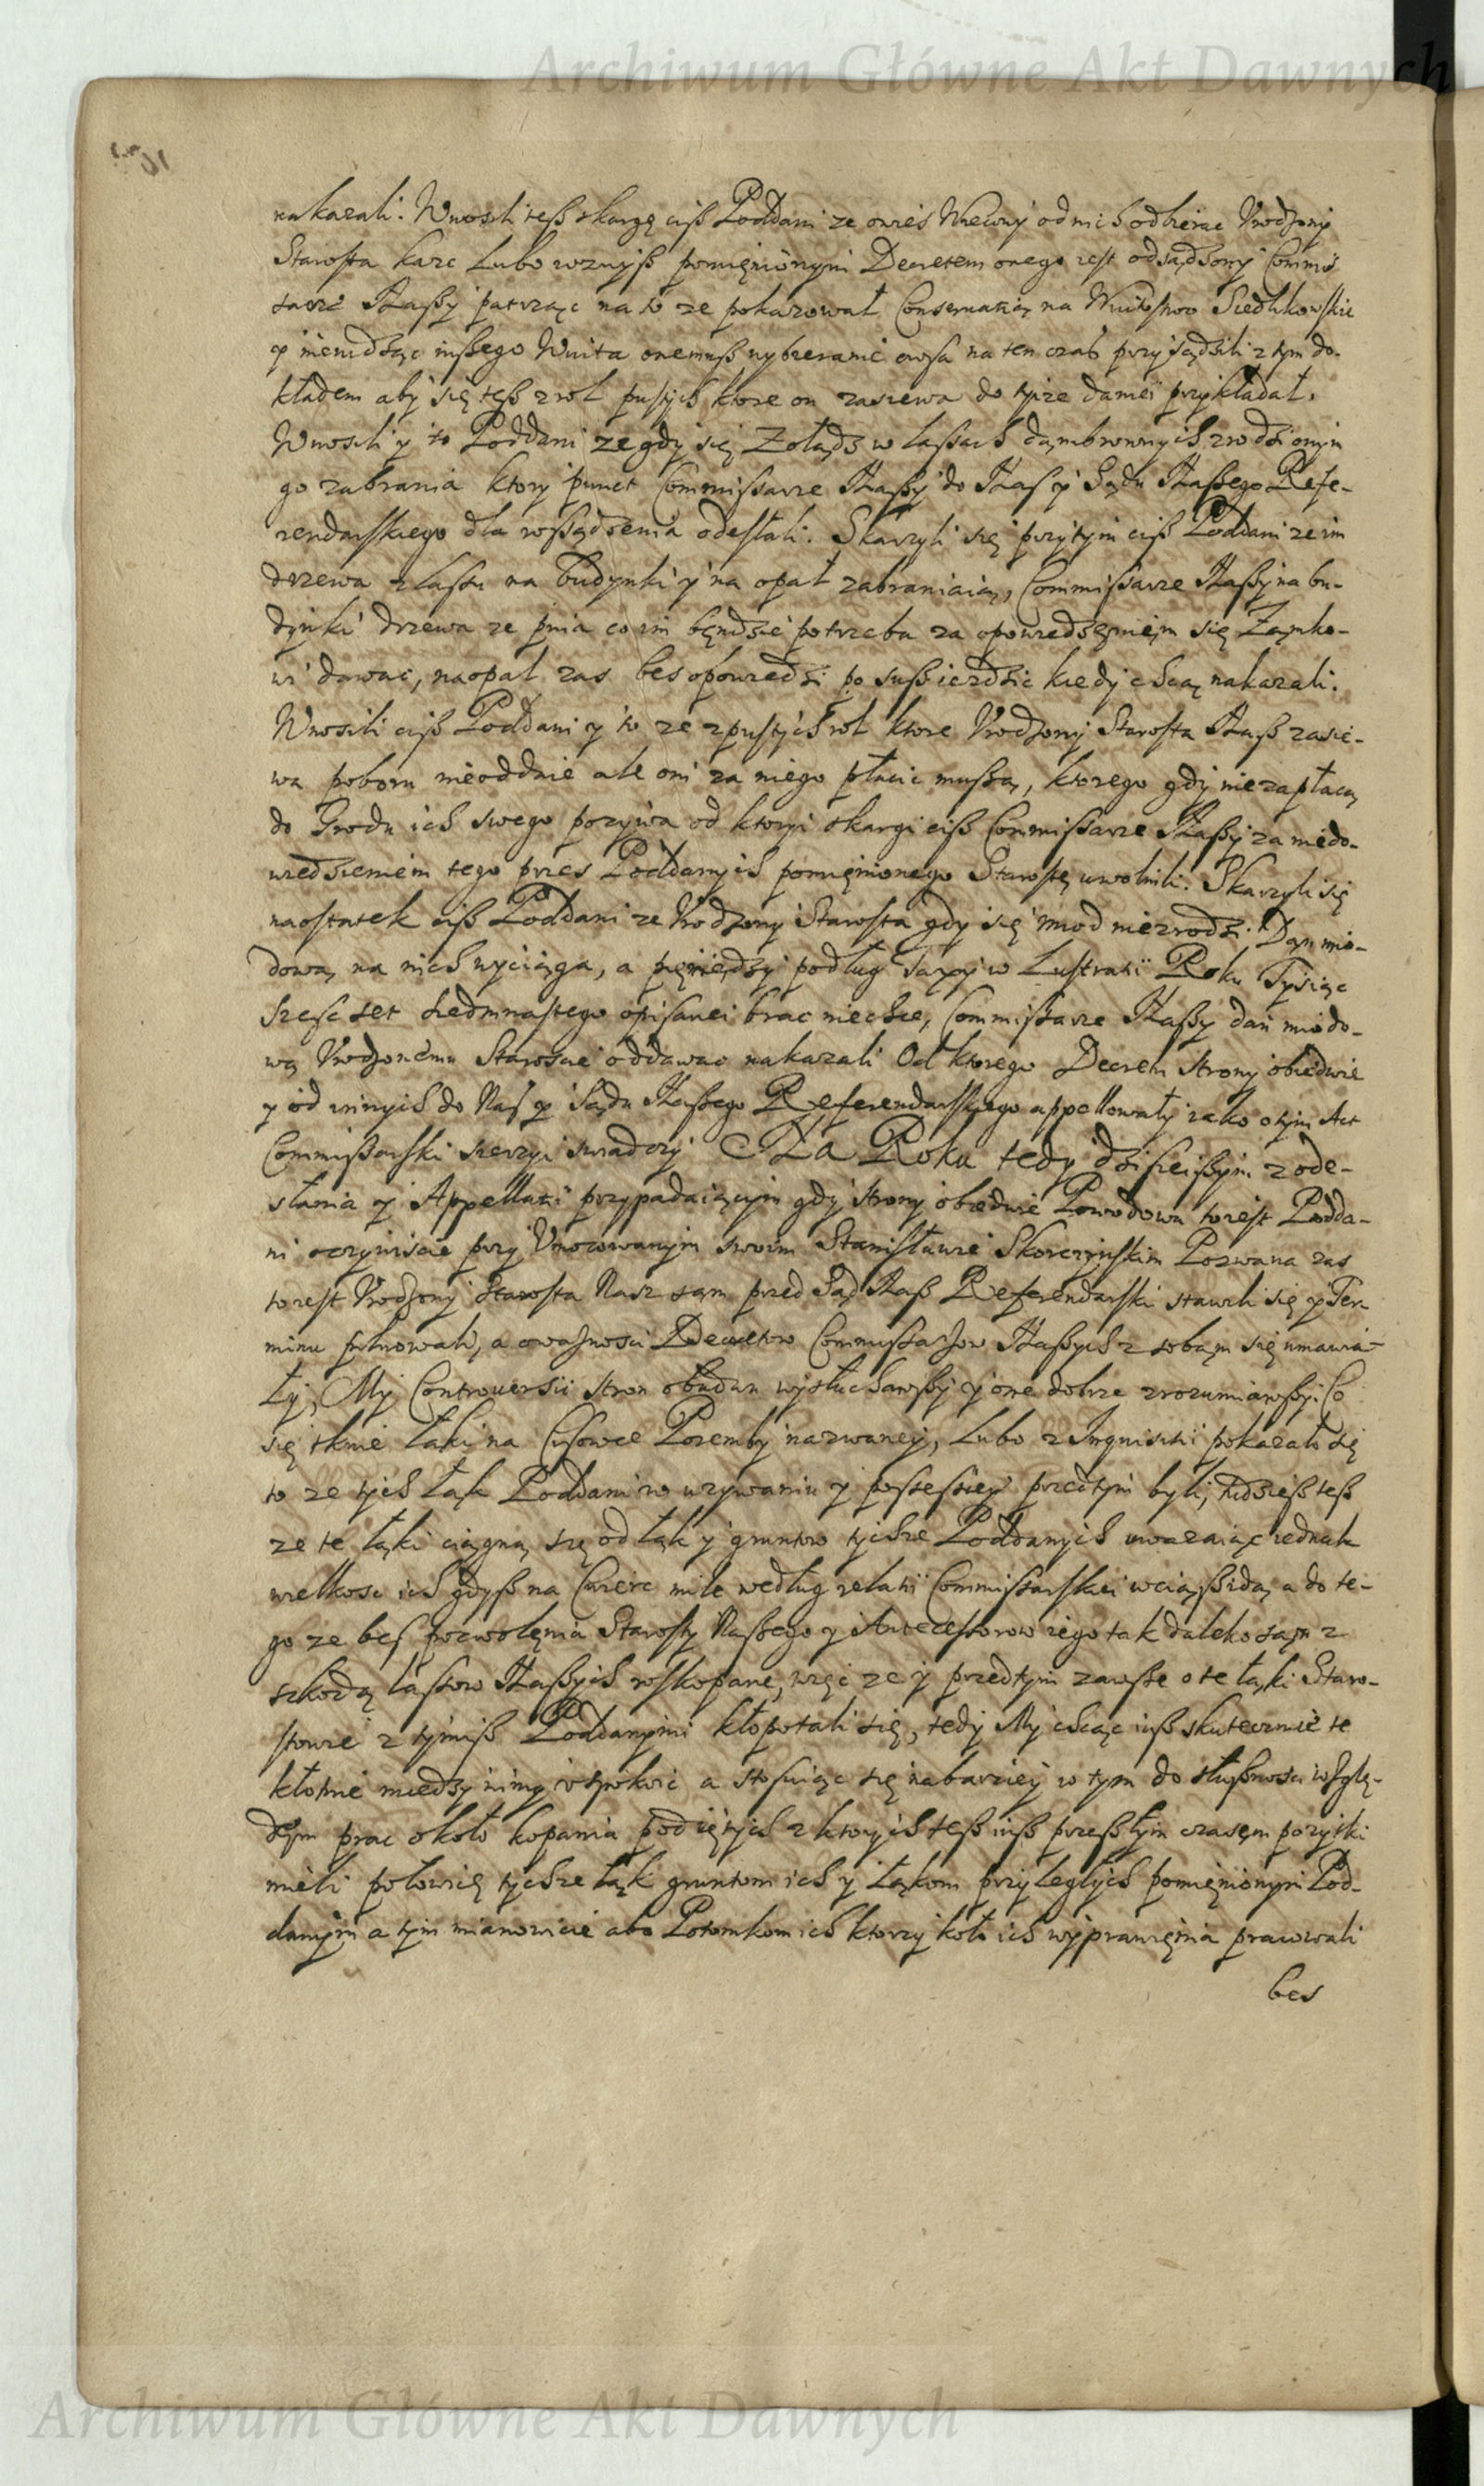 Archiwum Główne Akt Dawnych
nakazali. Wnosili teß skargę ciß Poddani ze owies od nich odbierac Vrodzony
Starosta kaze Lubo wzwyß pomięnionym Decretem onego iest odsądzony Commis
sarze Naßy patrząc na to ze pokazował Conservatią na Wuitostwo Siedlikowskie
y niewidząc inßego Wuita onemuß wybieranie owsa na ten czas przysądzili z tym do-
kładem aby się teß z rol pustych ktore on zasiewa do tyize daniei przykładał.
Wnosili y to Poddani ze gdy się Zołądz w lassach dąmbrownych zrodzi onym
go zabrania ktory punct Commissarze Naßy do Nas y Sądu Naßego Refe-
rendarskiego dla rossądzenia odesłali. Skarzyli się przytym ciß Poddani ze im
drzewa z lassu na budynki y na opał zabraniaią, Commissarze Naßy na bu-
dynki drzewa ze pnia co im będzie potrzeba za opowiedzęnięm się Zamko-
wi dawac, na opał zas bes opowiedzi po sußierdzie kiedy chcą nakazali.
Wnosili ciß Poddani y to ze z pustych rol ktore Vrodzony Starosta Naß zasie-
wa poboru nieoddaie ale oni za niego płacic mußą, ktorego gdy niezapłacą
do Grodu ich swego pozywa od ktoryi skargi ciß Commissarze Naßy za niedo-
wiedzieniem tego przes Poddanych pomięnionego Starostę uwolnili. Skarzyli się
naostatek ciß Poddani ze Vrodzony Starosta gdy się miod niezrodzi. Dań mio-
dową na nich wyciąga, a pięniędzy podług taxy w Lustratii Roku Tysiąc
Szescset siedmnastego opisanei brac niechce, Commissarze Naßy dań miodo-
wą Vrodzonemu Staroscie oddawac nakazali Od ktorego Decretu strony obiedwie
y od innych do Nas y Sądu Naßego Referendarskiego appellowały iako o tym Act
Commissarski szerzyi swiadczy Na Roku tedy dzisieißym z ode-
słania y Appellatii przypadaiącym gdy strony obiedwie Powodowa to iest Podda-
ni oczywiscie przy Vmocowanym swoim Stanisławie Skorczynskim Pozwana zas
to iest Vrodzony Starosta Nasz sam przed Sąd Naß Referendarski stawili się y Ter-
minu pilnowali, a o waznosci Decretow Commissarzow Naßych z sobąm się umawia-
ły, My Controversii stron obudwu wysłuchawßy y one dobrze zrozumiawßy. Co
się tknie łąki na Cisowce Poremby nazwaney, Lubo z Inquisitii pokazało się
to ze tych łąk Poddani w uzywaniu y possessiey przedtym byli, tudzieß teß
ze te łąki ciągną się od łąk y gruntow tychze Poddanych uwazaiąc iednak
wielkosc ich gdyß na Cwierc mile według relatii Commissarskiei wciąßz idą a do te-
go ze bes pozwolęnia Starosty Naßego y Antecessorow iego tak daleko sąm z
szkodą lassow Naßych roskopane, więc ze y przedtym zawsse o te łąki Staro-
stowie z tymiß Poddanymi kłopotali się, tedy My chcąc iuß skutecznie te
kłotnie miedzy nimy vspokoic a stosuiąc się nabarziey w tym do słußnosci wzglę-
dem prac około kopania podiętych z ktorych teß iuß przeßłym czasem pozytki
mieli połowicę tychze łąk gruntom ich y łąkom przyległych pomięnionym Pod-
danym a tym mianowicie abo Potomkom ich ktorzy koło ich wyprawięnia pracowali
bes
Archiwum Główne Akt Dawnych